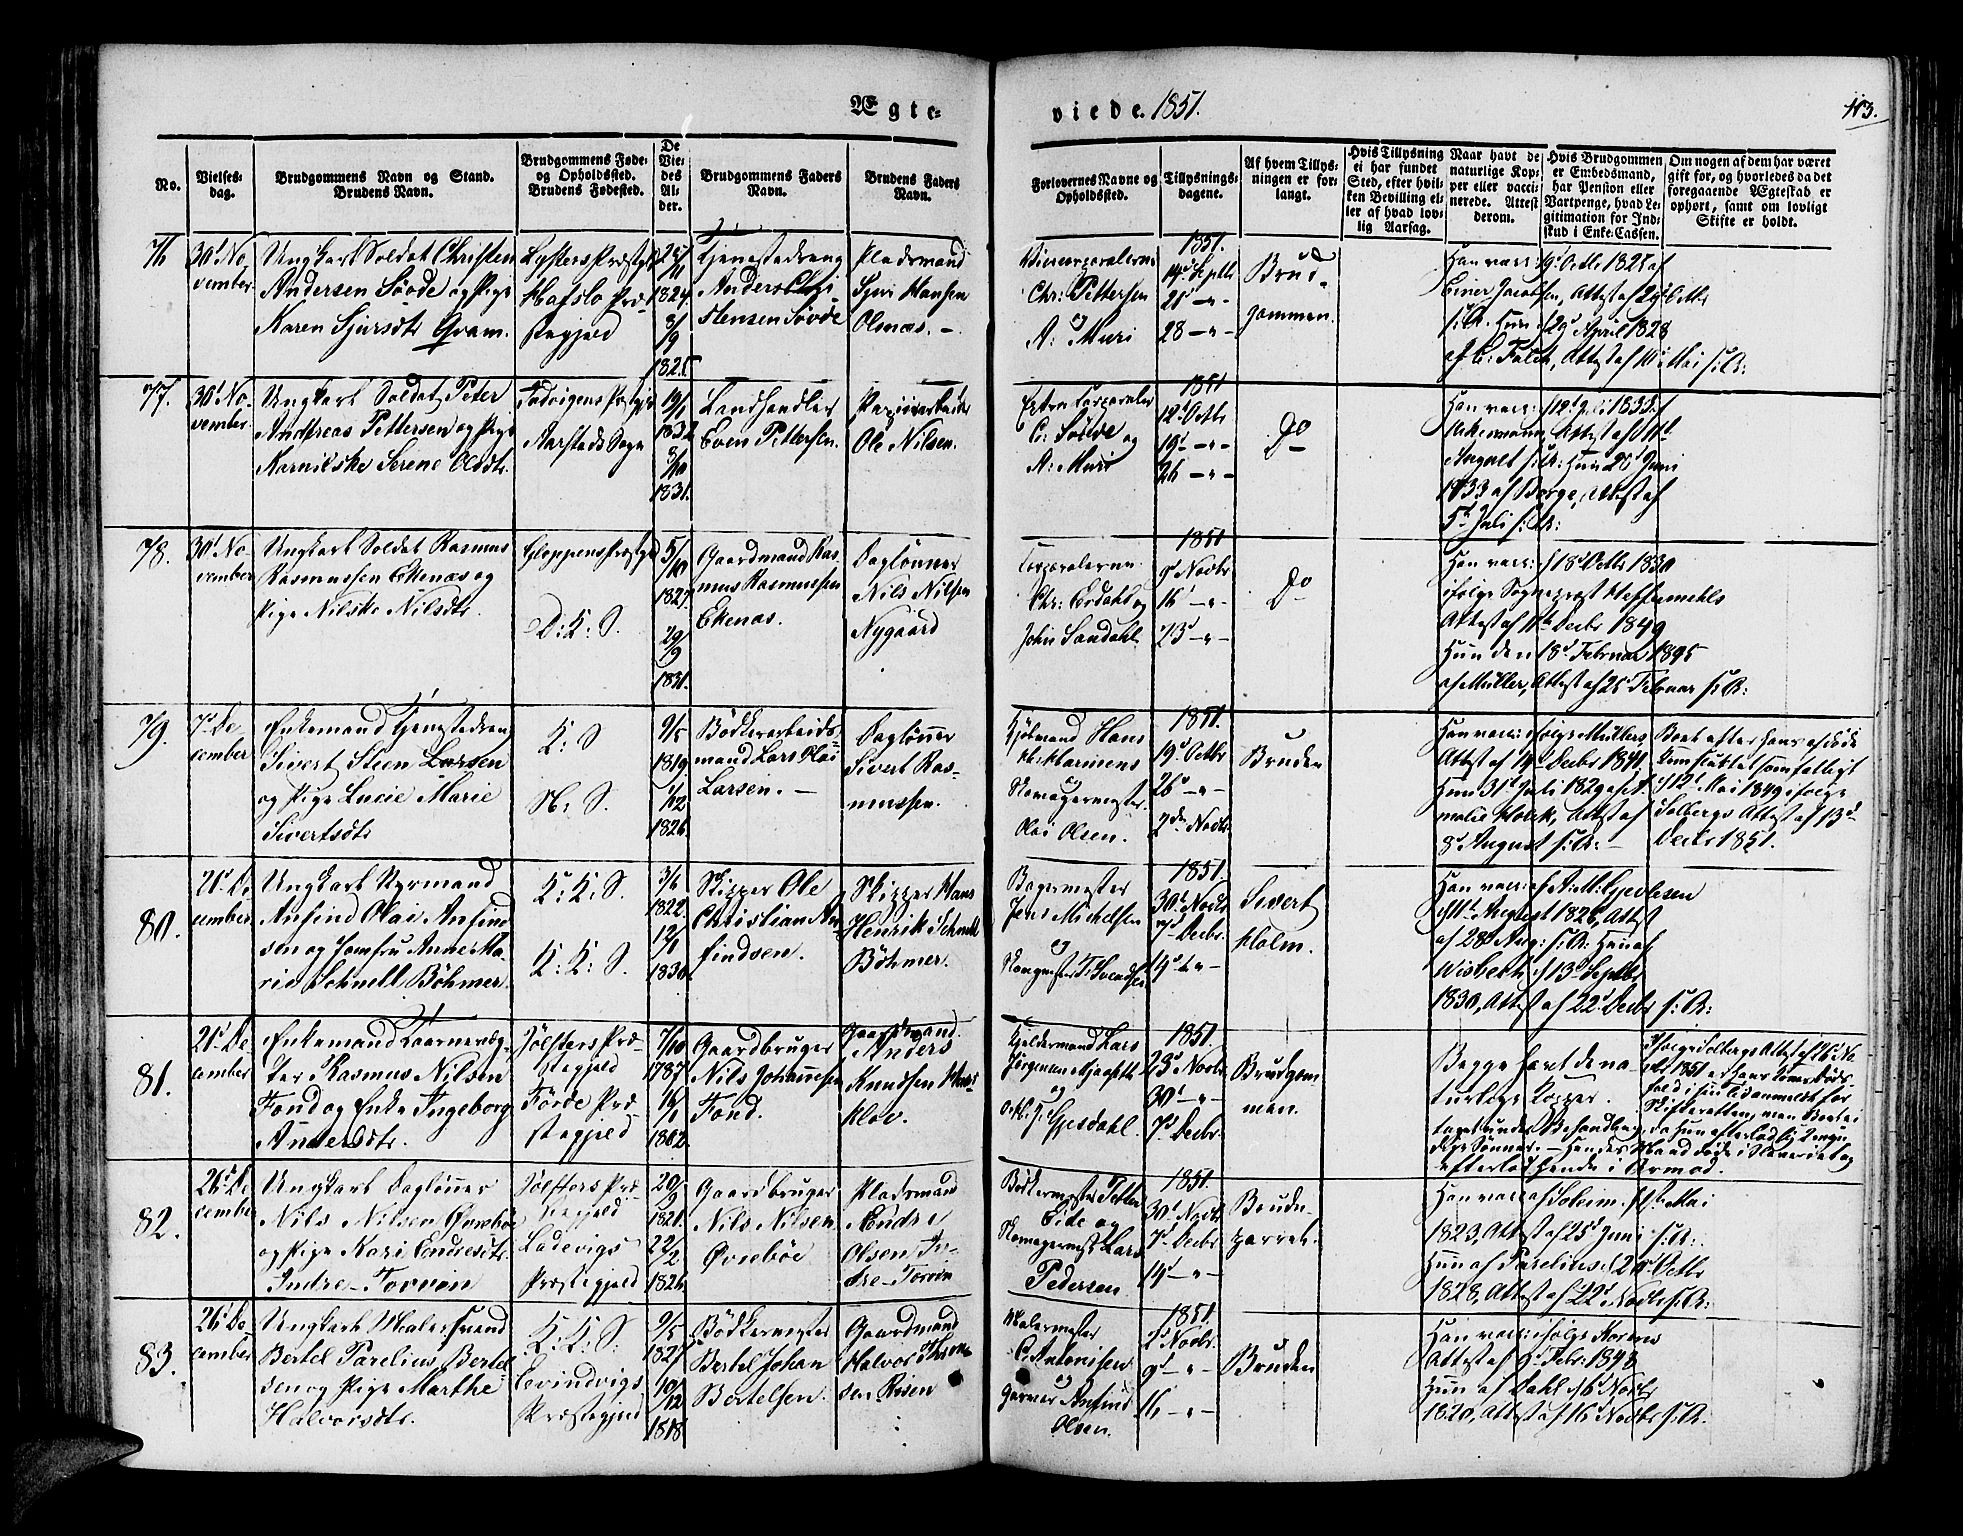 Ægte-
viede. 1851.
113.
No.
Vielses-
dag.
Brudgommens Navn og Stand.
Brudens Navn.
Brudgommens Føde-
og Opholdssted.
Brudens Fødested.
De
Vie-
des
Al-
der.
Brudgommens Faders
Navn.
Brudens Faders
Navn.
Forlovernes Navne og
Opholdssted.
Tillysnings-
dagene.
Af hvem Tillys-
ningen er for-
langt.
Hvis Tillysning
ei har fundet
Sted, efter hvil-
ken Bevilling el-
ler af hvad lov-
lig Aarsag.
Naar havt de
naturlige Kop-
per eller vacci-
nerede. Attest
derom.
Hvis Brudgommen
er Embedsmand,
har Pension eller
Vartpenge, hvad Le-
gitimation for Ind-
skud i Enke-Cassen.
Om nogen af dem har været
gift før, og hvorledes da det
foregaaende Ægteskab er
ophørt, samt om lovligt
Skifte er holdt.
76
30' No-
vember.
Ungkarl Soldat Christen
Andersen Søvde og Pige
Karen Sjursdtr Qvam.
Lysters Præstgd
Hafslo Præ-
stegjeld
25/11
1824.
8/9
1825.
Tjenestedreng
Anders Chri-
stensen Søvde
Pladsmand
Sjur Hansen
Olnæs. -
Vicecorporalerne
Chr: Pettersen
og
A: Muri
1851.
14d Septbr
21' -"-
28 -"-
Brud-
gommen.
Han vacc: 9d Octbr 1827 af
Einer Jacobsen, Attest af 24d Octbr
s: A: Hun 29d April 1828
af C: Falch, Attest af 10d Mai s: A:
77.
30' No-
vember.
Ungkarl Soldat Peter
Andreas Pettersen og Pige
Narnilske Serene Olsdtr.
Ladvigens Præstgd
Aarstads Sogn
19/1
1832
8/10
1831.
Landhandler
Even Pettersen.
Ole Nilsen.
Extra Corporaler
C: Søvde og
A: Muri
1851
12' Octbr
19' -"-
26 -"-
Do
Han vacc: 12d Juli 1833 af
August s: A: Hun 20d Juni
1833 af Borge, Attest af
5te Juli s: A:
78.
30' No-
vember
Ungkarl Soldat Rasmus
Rasmussen Ekenæs og
Pige Nilske Nilsdtr.
Gloppens Præstgd
D: K: S.
5/10
1827.
29/9
1831.
Gaardmand Ras-
mus Rasmussen
Ekenæs.
Daglønner
Nils Nilsen
Nygaard
Corporalerne
Chr: Erdahl og
John Sandahl
1851
9d Novbr
16' -"-
23' -"-
Do
Han vacc: 18d Octbr 1830
ifølge Sognepræst
Attest af 11te Decbr 1849
Hun den 18d Februar
af Müller, Attest af 25 Februar s: A:
79.
7' De
cember
Enkemand Tjenestedreng
Sivert Steen Larsen
og Pige Lucie Marie
Sivertsdtr
K: S
N: S.
9/5
1819.
1/12
1826.
Bødkerarbeids-
mand Lars Olai
Larsen. -
Daglønner
Sivert Ras-
mussen.
Kjøbmand Hans
og
Olai Olsen.
1851.
19d Octbr
26' -"-
2den Novbr
Bruden
Han vacc: ifølge Müllers
Attest af 14 Decbr 1841.
Hun 31d Juli 1829 af
malie Holck, Attest af
8d August s: A: -
Boet efter hans afdøde
12' Mai 1849 ifølge
Solbergs Attest af 13d
Decbr 1851.
80.
21' De
cember
Ungkarl Styrmand
Ansind Olai Ansind-
sen og Jomfru Anne Ma-
rie Schnell Böhmer.
K: K: S.
K: K: S.
3/6
1822.
12/1
1830.
Skipper Ole
Christian An-
sindsen.
Skipper Hans
Henrik Schnell
Böhmer.
Bagermester
Jens Michelsen
og
1851.
30' Novbr
7d Decbr
14d -"-
Sivert
Holm.
Han vacc: af A: M: Gjertsen
11te August 1826, Attest
af 28d Aug: s: A: Hun af
Wisbech 13d Septbr
1830, Attest af 22' Decbr s: A:
81.
21' De-
cember
Enkemand Taarnvæg-
ter Rasmus Nilsen
Fond og Enke Ingeborg
Andersdtr.
Jølsters Præ-
stegjeld
Førde Præ-
stegjeld
7/10
1787.
16/1
1802.
Gaardbruger
Nils Johannesen
Fond.
Gaardmand
Anders
Knudsen
Kjeldermand Lars
og
1851.
23d Novbr
30' -"-
7' Decbr
Brudgom-
men.
Begge havt de na-
turlige Kopper.
82.
26' De
cember
Ungkarl Daglønner
Nils Nilsen Øvrebøe
og Pige Kari Endresdtr.
Indre-Torvøn
Jølsters Præ-
stegjeld
Ladevigs
Præstegjeld
20/9
1821.
22/2
1826
Gaardbruger
Nils Nilsen
Øvrebøe
Pladsmand
Endre
Olsen In-
dre-Torvøn
Bødkermester Petter
Eide og
Lars
Pedersen
1851.
30' Novbr
7' Decbr
14' -"-
Brude-
parret.
Han vacc: af Soleim Mai
1823, Attest af 25d Juni s: A:
Hun af Parelius 20d Octbr
1828, Attest af 22' Novbr s: A:
83.
26' De-
cember
Ungkarl Malersvend
Bertel Parelius Bertel-
sen og Pige Marthe
Halvorsdtr.
K: K: S.
Evindvigs
Præstegjeld
9/5
1827
10/12
1818.
Bødkermester
Bertel Johan
Bertelsen.
Gaardmand
Halvor Thor-
sen Risen
Malermester
C: Antonisen
og
Garver Ansind
Olsen.
1851.
2d Novbr
9d -"-
16 -"-
Bruden
Han vacc: ifølge Korens
Attest af 9' Febr: 1843
Hun af Dahl 16 Novbr
1820, Attest af 16 Novbr s: A.